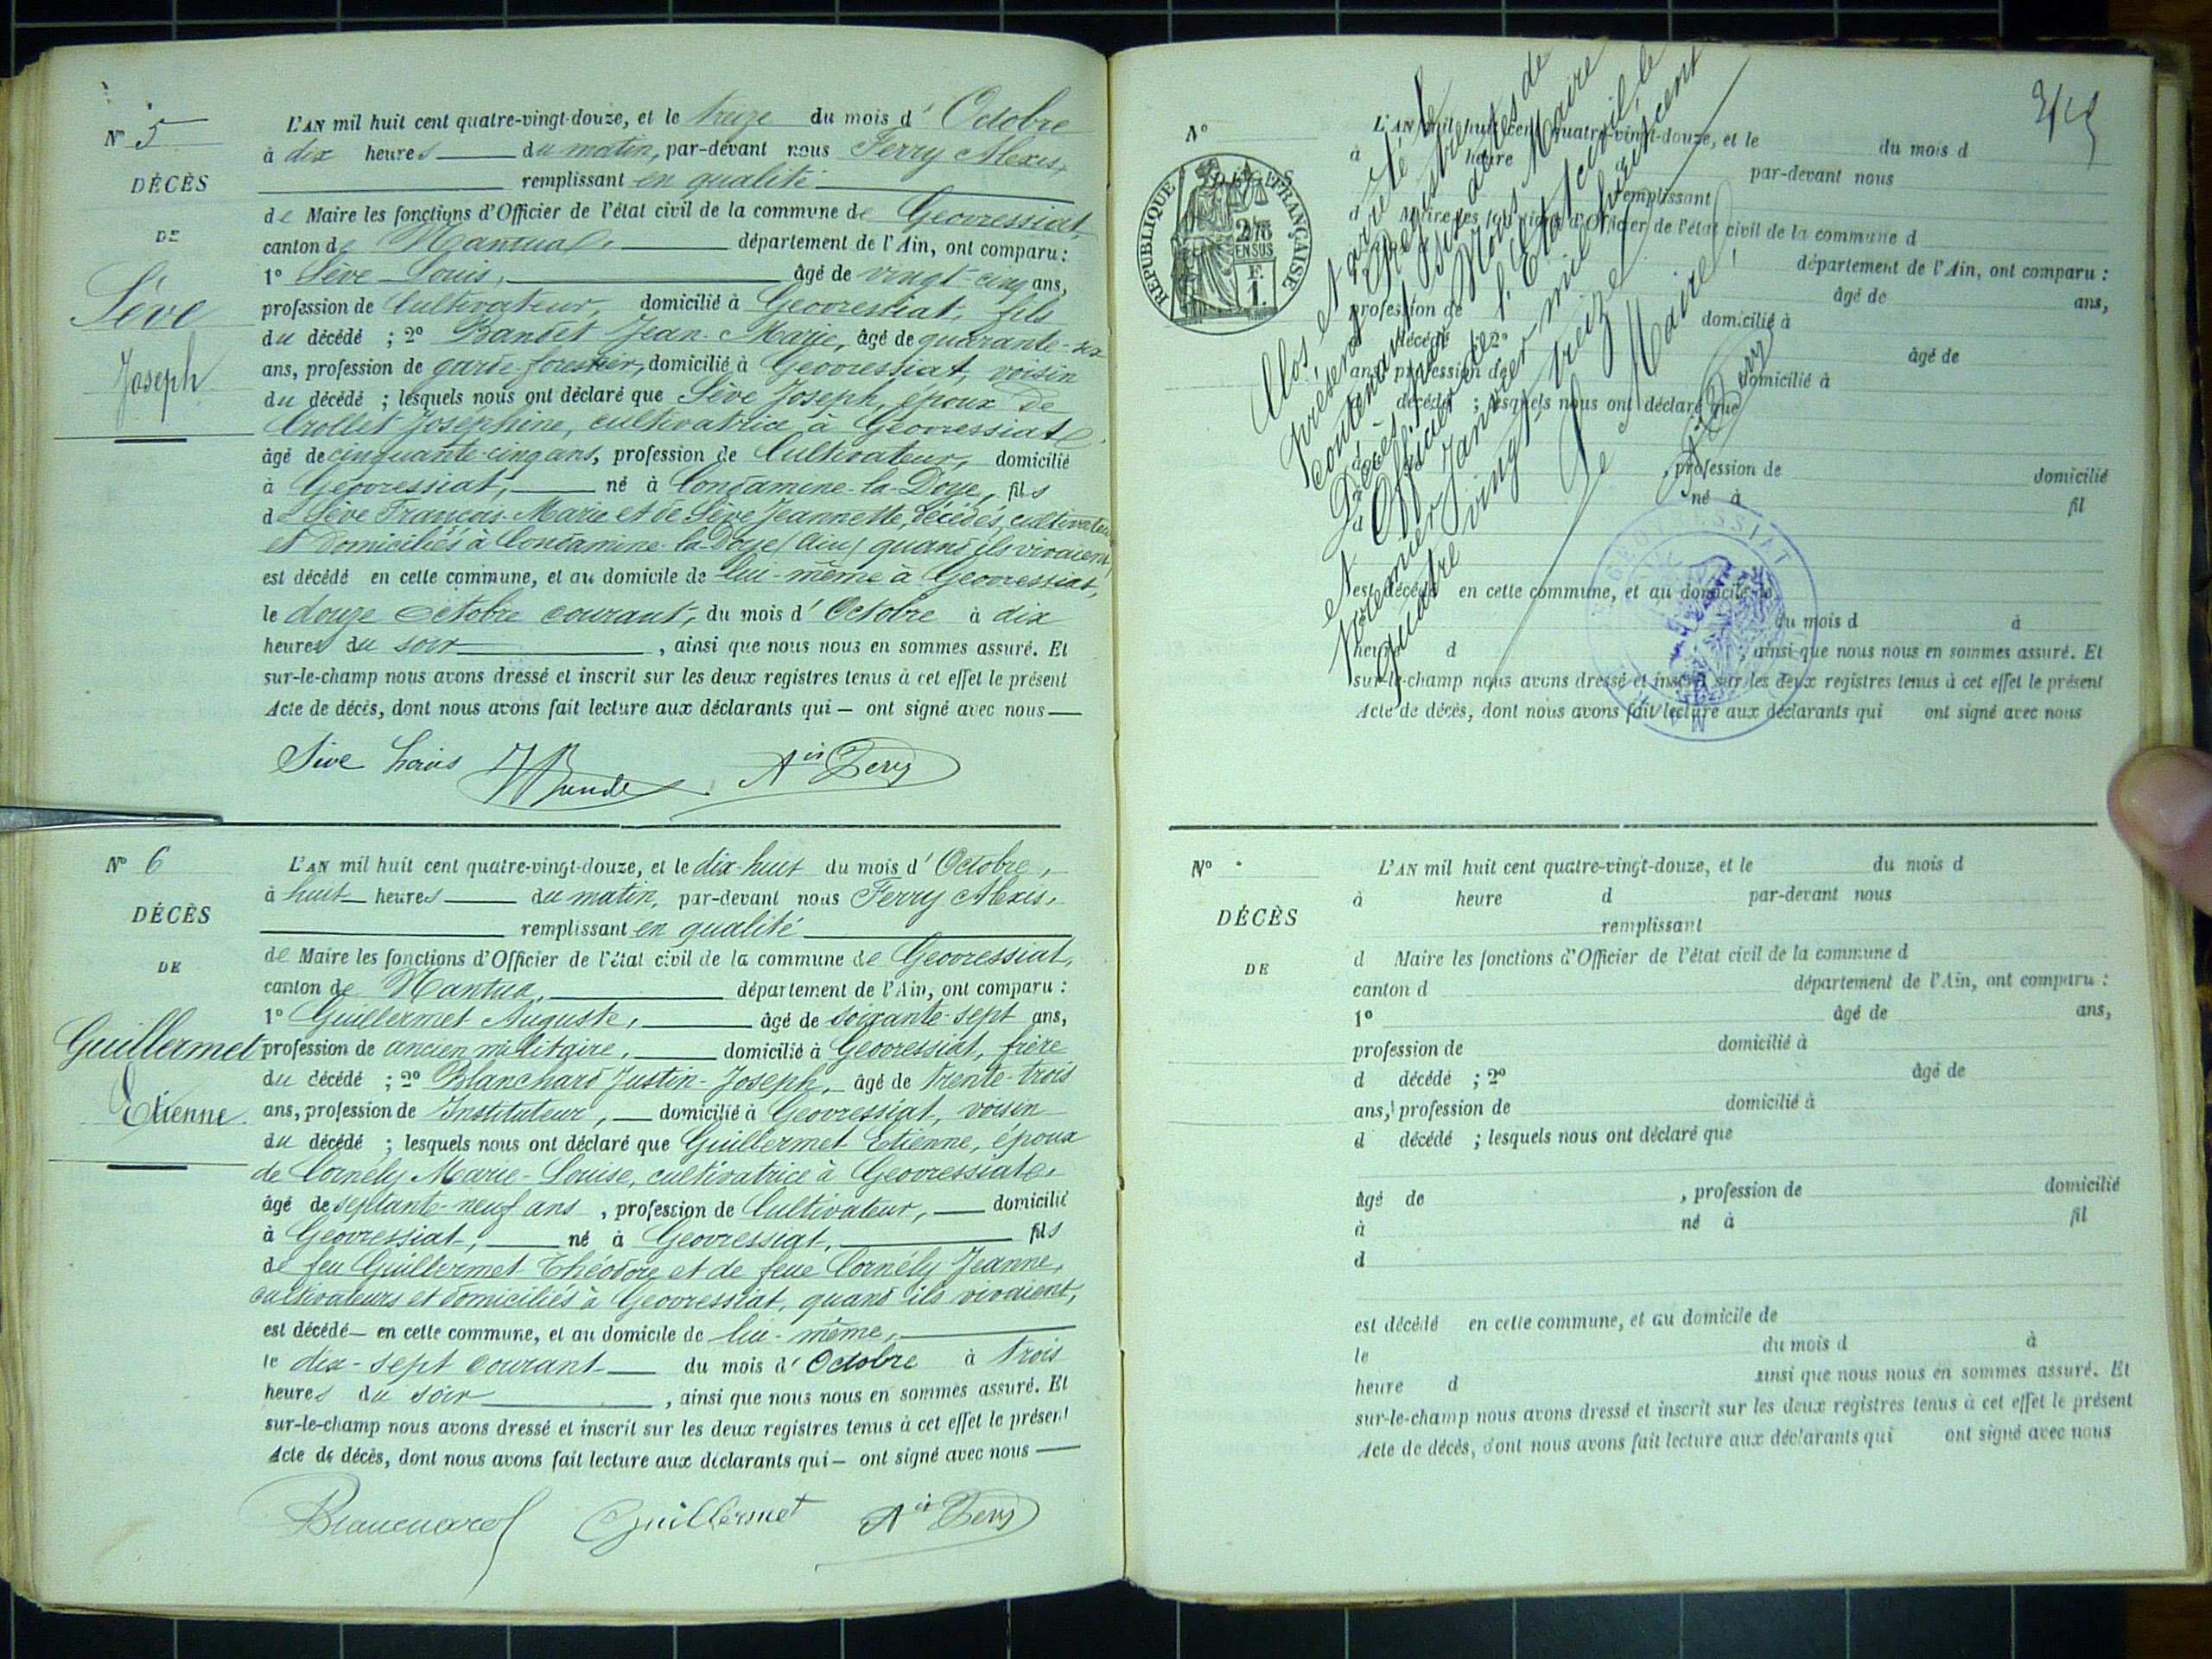 N° 5
DÉCÈS
DE
Sève
Joseph
L'AN mil huit cent quatre-vingt-douze, et le treize du mois d' Octobre
à dix heures du matin, par-devant nous Ferry Alexis,
remplissant en qualité
de Maire les fonctions d'Officier de l'état civil de la commune de Géovressiat,
canton de Nantua, département de l'Ain, ont comparu :
1° Sève Louis, âgé de vingt-cinq ans,
profession de Cultivateur, domicilié à Géovressiat, fils
du décédé ; 2° Bandet Jean-Marie, âgé de quarante-six
ans, profession de garde-forestier, domicilié à Géovressiat, voisin
du décédé ; lesquels nous ont déclaré que Sève Joseph, époux de
Crollet Joséphine, cultivatrice à Géovressiat,
âgé de cinquante-cinq ans, profession de Cultivateur, domicilié
à Géovressiat, né à Condamine-la-Doye, fils
de Sève François-Marie et de Sève Jeannette, décédés, cultivateurs
et domiciliés à Condamine-la-Doye (Ain) quand ils vivaient,
est décédé en cette commune, et au domicile de lui-même à Géovressiat,
le douze octobre courant, du mois d' Octobre à dix
heures du soir, ainsi que nous nous en sommes assuré. Et
sur-le-champ nous avons dressé et inscrit sur les deux registres tenus à cet effet le présent
Acte de décès, dont nous avons fait lecture aux déclarants qui — ont signé avec nous —
Sève Louis Bandet Ais Ferry
N° 6
DÉCÈS
DE
Guillermet
Etienne
L'AN mil huit cent quatre-vingt-douze, et le dix-huit du mois d' Octobre,
à huit heures du matin, par-devant nous Ferry Alexis,
remplissant en qualité
de Maire les fonctions d'Officier de l'état civil de la commune de Géovressiat,
canton de Nantua, département de l'Ain, ont comparu :
1° Guillermet Auguste, âgé de soixante-sept ans,
profession de ancien militaire, domicilié à Géovressiat, frère
du décédé ; 2° Blanchard Justin-Joseph, âgé de trente-trois
ans, profession de Instituteur, domicilié à Géovressiat, voisin
du décédé ; lesquels nous ont déclaré que Guillermet Etienne, époux
de Cornély Marie-Louise, cultivatrice à Géovressiat,
âgé de septante-neuf ans, profession de Cultivateur, domicilié
à Géovressiat, né à Géovressiat, fils
de feu Guillermet Théodore et de feue Cornély Jeanne,
cultivateurs et domiciliés à Géovressiat, quand ils vivaient,
est décédé — en cette commune, et au domicile de lui-même,
le dix-sept courant du mois d' Octobre à trois
heures du soir, ainsi que nous nous en sommes assuré. Et
sur-le-champ nous avons dressé et inscrit sur les deux registres tenus à cet effet le présent
Acte de décès, dont nous avons fait lecture aux déclarants qui — ont signé avec nous —
Blanchard Guillermet Ais Ferry
N°
RÉPUBLIQUE FRANÇAISE
2/10
EN SUS
F.
1.
L'AN mil huit cent quatre-vingt-douze, et le du mois d
à heure par-devant nous
remplissant
d Maire les fonctions d'Officier de l'état civil de la commune d
département de l'Ain, ont comparu :
âgé de ans,
profession de domicilié à
décédé ; 2° âgé de
ans, profession de domicilié à
décédé ; lesquels nous ont déclaré que
, profession de domicilié
né à fil
est décédé en cette commune, et au domicile de
du mois d à
heure d , ainsi que nous nous en sommes assuré. Et
sur-le-champ nous avons dressé et inscrit sur les deux registres tenus à cet effet le présent
Acte de décès, dont nous avons fait lecture aux déclarants qui ont signé avec nous
Clos et arrêté le
présent Registre
contenant six actes de
Décès, par Nous Maire
Officier de l'Etat civil le
premier Janvier mil huit cent
quatre vingt-treize
Le Maire,
Ais Ferry
GEOVRESSIAT
N°
DÉCÈS
DE
L'AN mil huit cent quatre-vingt-douze, et le du mois d
à heure d par-devant nous
remplissant
d Maire les fonctions d'Officier de l'état civil de la commune d
canton d département de l'Ain, ont comparu :
1° âgé de ans,
profession de domicilié à
d décédé ; 2° âgé de
ans, profession de domicilié à
d décédé ; lesquels nous ont déclaré que
âgé de , profession de domicilié
à né à fil
d
est décédé en cette commune, et au domicile de
le du mois d à
heure d ainsi que nous nous en sommes assuré. Et
sur-le-champ nous avons dressé et inscrit sur les deux registres tenus à cet effet le présent
Acte de décès, dont nous avons fait lecture aux déclarants qui ont signé avec nous